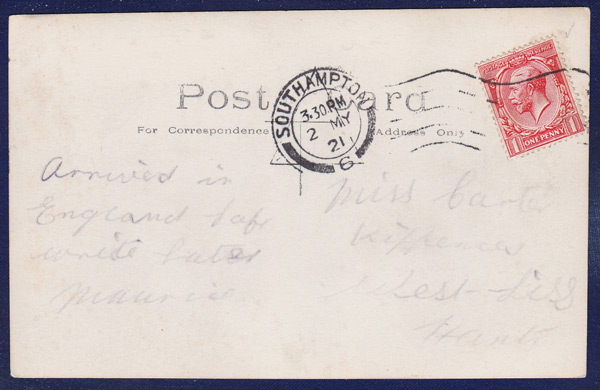 Post Card
For Correspondence
Address Only
SOUTHAMPTON
3.30PM
2 MY
21
6
ONE PENNY
Arrived in
England safe
write later
Maurice
Miss Carter
West-Liss
Hants